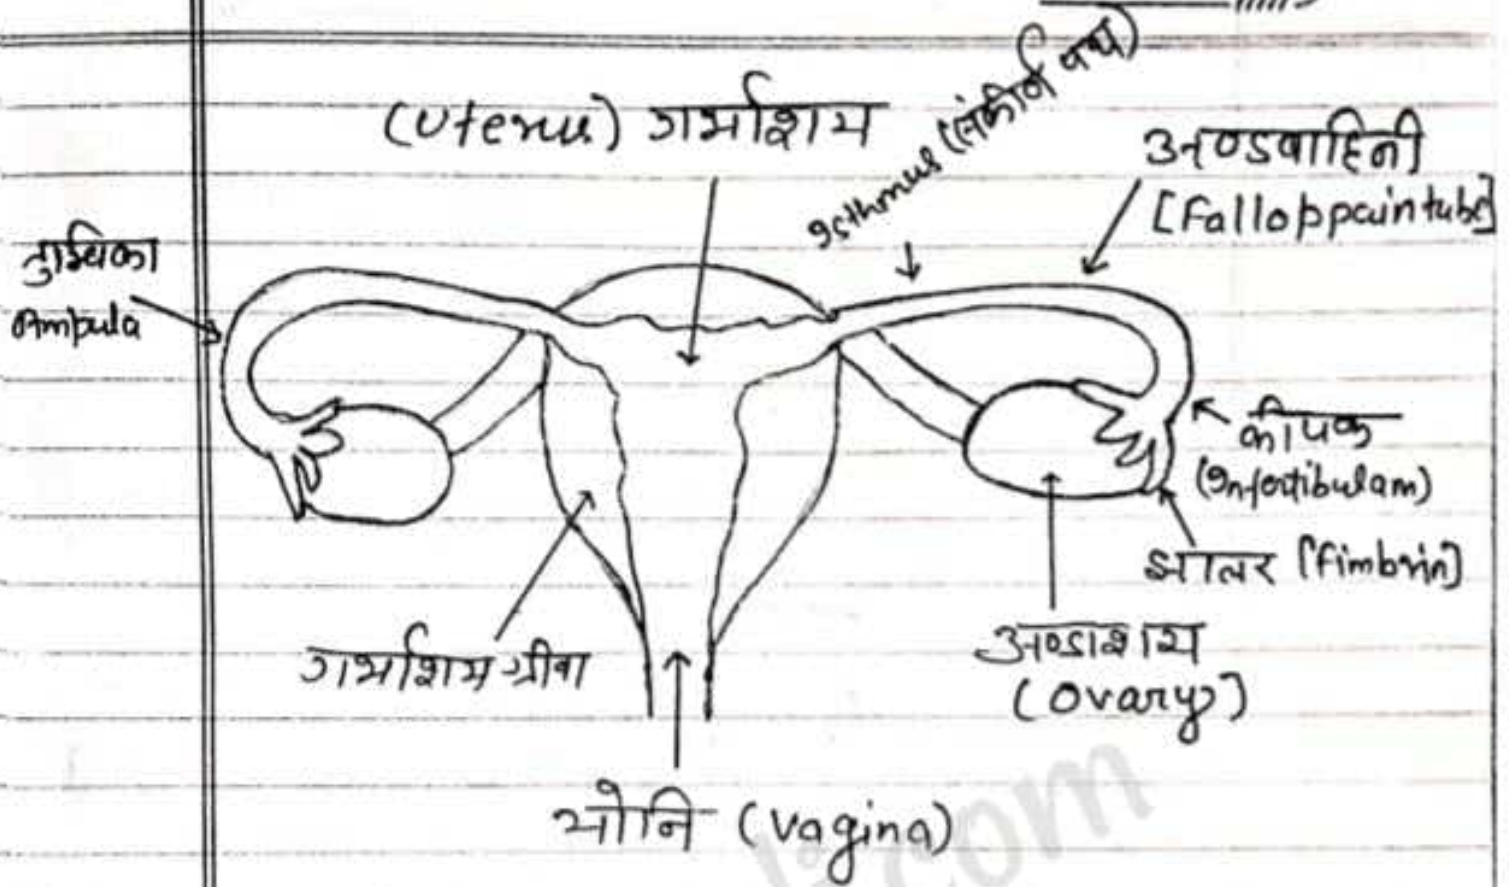 (Uterus) गर्भाशय
Isthmus (संकीर्ण पथ)
अण्डवाहिनी
[Falloppaintube]
तुम्बिका
Ampula
कीपक
(Infortibulam)
झालर [Fimbrin]
गर्भाशय ग्रीवा
अण्डाशय
(Ovary)
योनि (Vagina)
.com